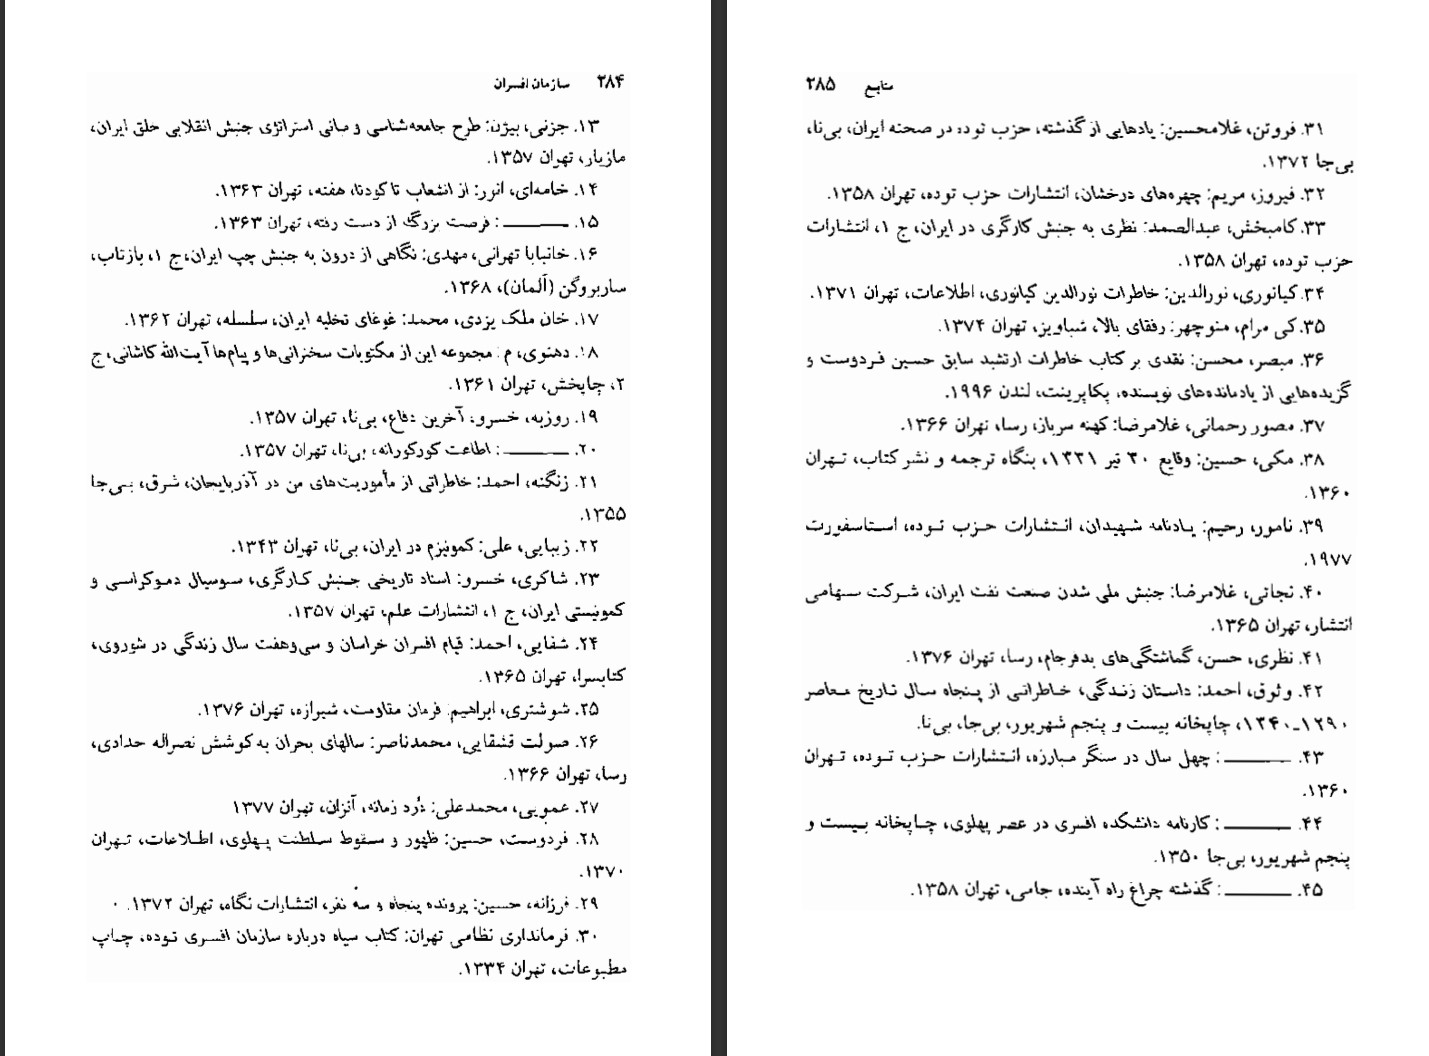 ۲۸۴ سازمان افسران
۱۳. جزنی، بیژن: طرح جامعه‌شناسی و مبانی استراتژی جنبش انقلابی خلق ایران،
مازیار، تهران ۱۳۵۷.
۱۴. خامه‌ای، انور: از انشعاب تا کودتا، هفته، تهران ۱۳۶۳.
۱۵. ــــــــــ : فرصت بزرگ از دست رفته، تهران ۱۳۶۳.
۱۶. خانبابا تهرانی، مهدی: نگاهی از درون به جنبش چپ ایران، ج ۱، بازتاب،
ساربروگن (آلمان)، ۱۳۶۸.
۱۷. خان ملک یزدی، محمد: غوغای تخلیه ایران، سلسله، تهران ۱۳۶۲.
۱۸. دهنوی، م: مجموعه این از مکتوبات سخنرانی‌ها و پیام‌ها آیت‌الله کاشانی، ج
۲، چاپخش، تهران ۱۳۶۱.
۱۹. روزبه، خسرو، آخرین دفاع، بی‌نا، تهران ۱۳۵۷.
۲۰. ــــــــــ : اطاعت کورکورانه، بی‌نا، تهران ۱۳۵۷.
۲۱. زنگنه، احمد: خاطراتی از مأموریت‌های من در آذربایجان، شرق، بی‌جا
۱۳۵۵.
۲۲. زیبایی، علی: کمونیزم در ایران، بی‌نا، تهران ۱۳۴۳.
۲۳. شاکری، خسرو: اسناد تاریخی جنبش کارگری، سوسیال دموکراسی و
کمونیستی ایران، ج ۱، انتشارات علم، تهران ۱۳۵۷.
۲۴. شفایی، احمد: قیام افسران خراسان و سی‌وهفت سال زندگی در شوروی،
کتابسرا، تهران ۱۳۶۵.
۲۵. شوشتری، ابراهیم: فرمان مقاومت، شیرازه، تهران ۱۳۷۶.
۲۶. صولت قشقایی، محمدناصر: سالهای بحران به‌کوشش نصراله حدادی،
رسا، تهران ۱۳۶۶.
۲۷. عمویی، محمدعلی: دُرد زمانه، آنزان، تهران ۱۳۷۷
۲۸. فردوست، حسین: ظهور و سقوط سلطنت پهلوی، اطلاعات، تهران
۱۳۷۰.
۲۹. فرزانه، حسین: پرونده پنجاه و سه نفر، انتشارات نگاه، تهران ۱۳۷۲.
۳۰. فرمانداری نظامی تهران: کتاب سیاه درباره سازمان افسری توده، چاپ
مطبوعات، تهران ۱۳۳۴.
منابع ۲۸۵
۳۱. فروتن، غلامحسین: یادهایی از گذشته، حزب توده در صحنه ایران، بی‌نا،
بی‌جا ۱۳۷۲.
۳۲. فیروز، مریم: چهره‌های درخشان، انتشارات حزب توده، تهران ۱۳۵۸.
۳۳. کامبخش، عبدالصمد: نظری به جنبش کارگری در ایران، ج ۱، انتشارات
حزب توده، تهران ۱۳۵۸.
۳۴. کیانوری، نورالدین: خاطرات نورالدین کیانوری، اطلاعات، تهران ۱۳۷۱.
۳۵. کی مرام، منوچهر: رفقای بالا، شباویز، تهران ۱۳۷۴.
۳۶. مبصر، محسن: نقدی بر کتاب خاطرات ارتشبد سابق حسین فردوست و
گزیده‌هایی از یادمانده‌های نویسنده، پکاپرینت، لندن ۱۹۹۶.
۳۷. مصور رحمانی، غلامرضا: کهنه سرباز، رسا، تهران ۱۳۶۶.
۳۸. مکی، حسین: وقایع ۳۰ تیر ۱۳۳۱، بنگاه ترجمه و نشر کتاب، تهران
۱۳۶۰.
۳۹. نامور، رحیم: یادنامه شهیدان، انتشارات حزب توده، استاسفورت
۱۹۷۷.
۴۰. نجاتی، غلامرضا: جنبش ملی شدن صنعت نفت ایران، شرکت سهامی
انتشار، تهران ۱۳۶۵.
۴۱. نظری، حسن، گماشتگی‌های بدفرجام، رسا، تهران ۱۳۷۶.
۴۲. وثوق، احمد: داستان زندگی، خاطراتی از پنجاه سال تاریخ معاصر
۱۲۹۰ـ۱۳۴۰، چاپخانه بیست و پنجم شهریور، بی‌جا، بی‌نا.
۴۳. ــــــــــ : چهل سال در سنگر مبارزه، انتشارات حزب توده، تهران
۱۳۶۰.
۴۴. ــــــــــ : کارنامه دانشکده افسری در عصر پهلوی، چاپخانه بیست و
پنجم شهریور، بی‌جا ۱۳۵۰.
۴۵. ــــــــــ : گذشته چراغ راه آینده، جامی، تهران ۱۳۵۸.